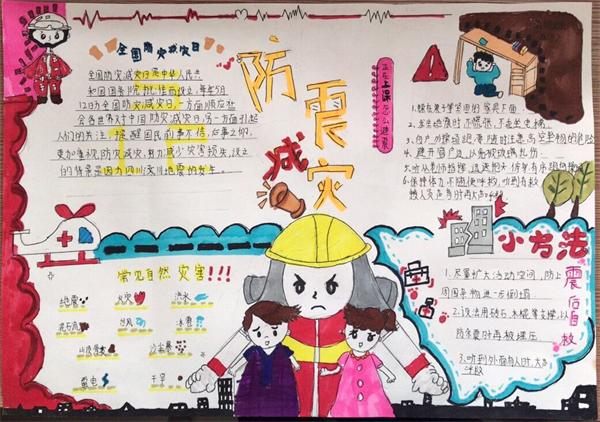 全国防灾减灾日
全国防灾减灾日是中华人民共
和国国务院批准而设立，每年5月
12日为全国防灾减灾日，一方面顺应社
会各界对于中国防灾减灾
另一方面引起
人们的关注，提醒国民前事不忘，后事之师，
更加重视防灾减灾，努力减少灾害损失，设立
的背景是因为四川汶川地震的发生
防震减灾
正在上课怎么避震
1.躲在
下面
2.发生地震时不慌张，不
电梯
4.避开窗户边，以免被玻璃扎伤
5.听从老师指挥
6.保持体力不随便呼救，听到有救
援人员声音时再大声呼救
常见自然灾害!!!
地震
火灾
洪水
泥石流
台风
冰雹
山体滑坡
沙尘暴
雷电
干旱
小方法
震后自救
1.尽量扩大活动空间，防止
周围杂物进一步倒塌
2.设法用砖石、木棍等支撑，以
防余震时再被埋压
3.听到外面有人时，大声
呼救